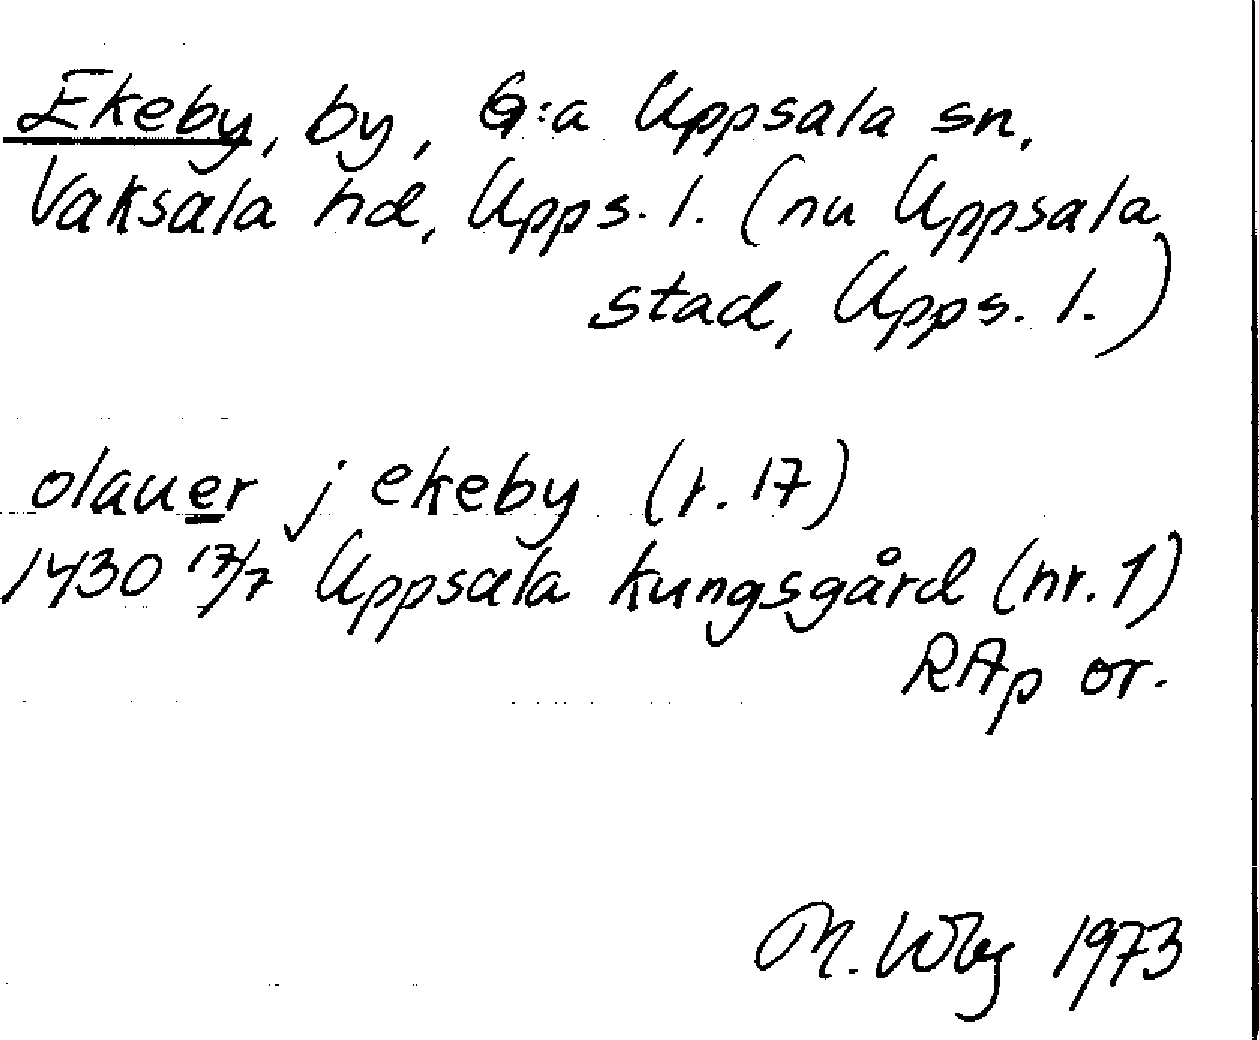 Ekeby, by, G:a Uppsala sn,
Vaksala hd, Upps. l. (nu Uppsala
stad, Upps. l.)
olauer j ekeby (r. 17)
1430 17/7 Uppsala kungsgård (nr. 1)
RAp or.
M. Wbg 1973